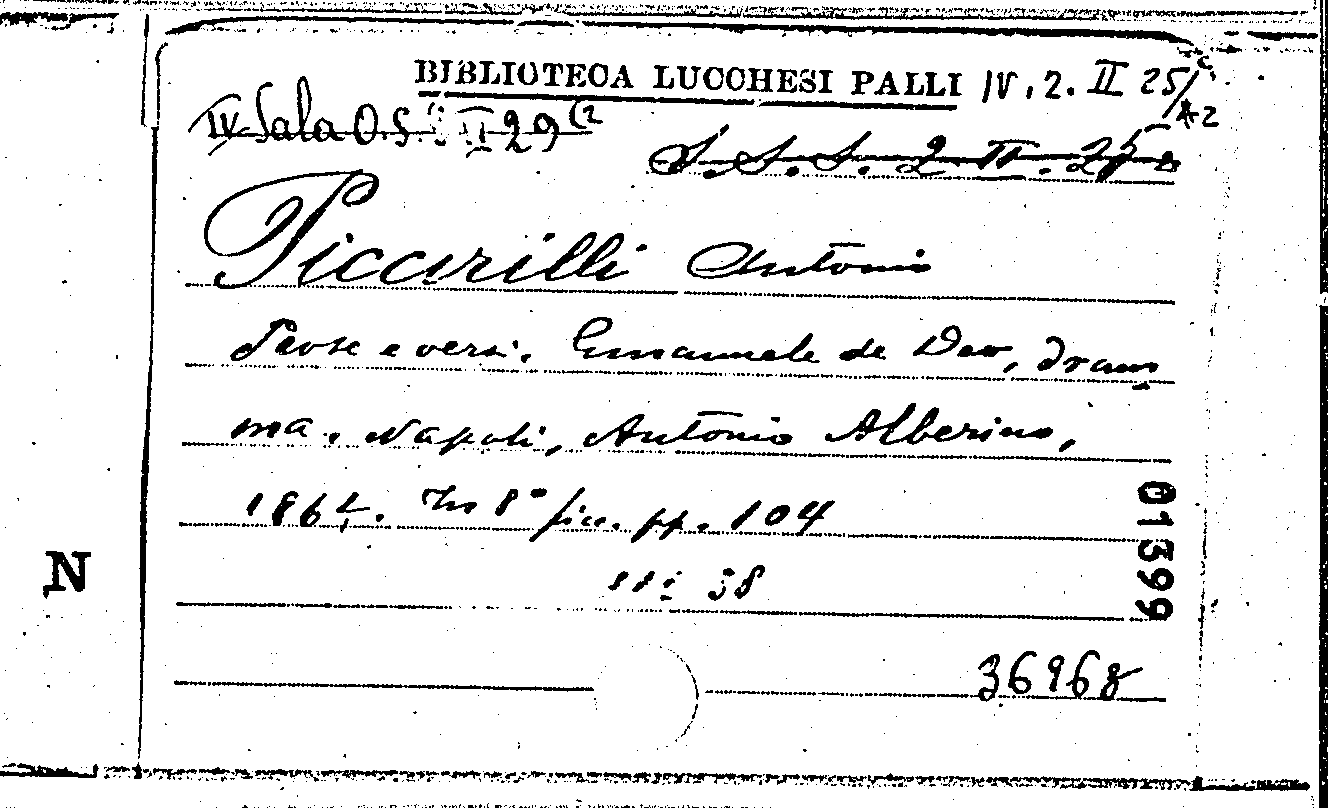 BIBLIOTECA LUCCHESI PALLI IV. 2. II 25/
A2
IV Sala O.S. II 29 (2
S. S. S. 2 II. 25
Piccirilli Antonio
Prose e versi. Emanuele de Deo, dram
ma. Napoli, Antonio Alberino,
1864. In 8° fic. pp. 104
58
01399
N
36968